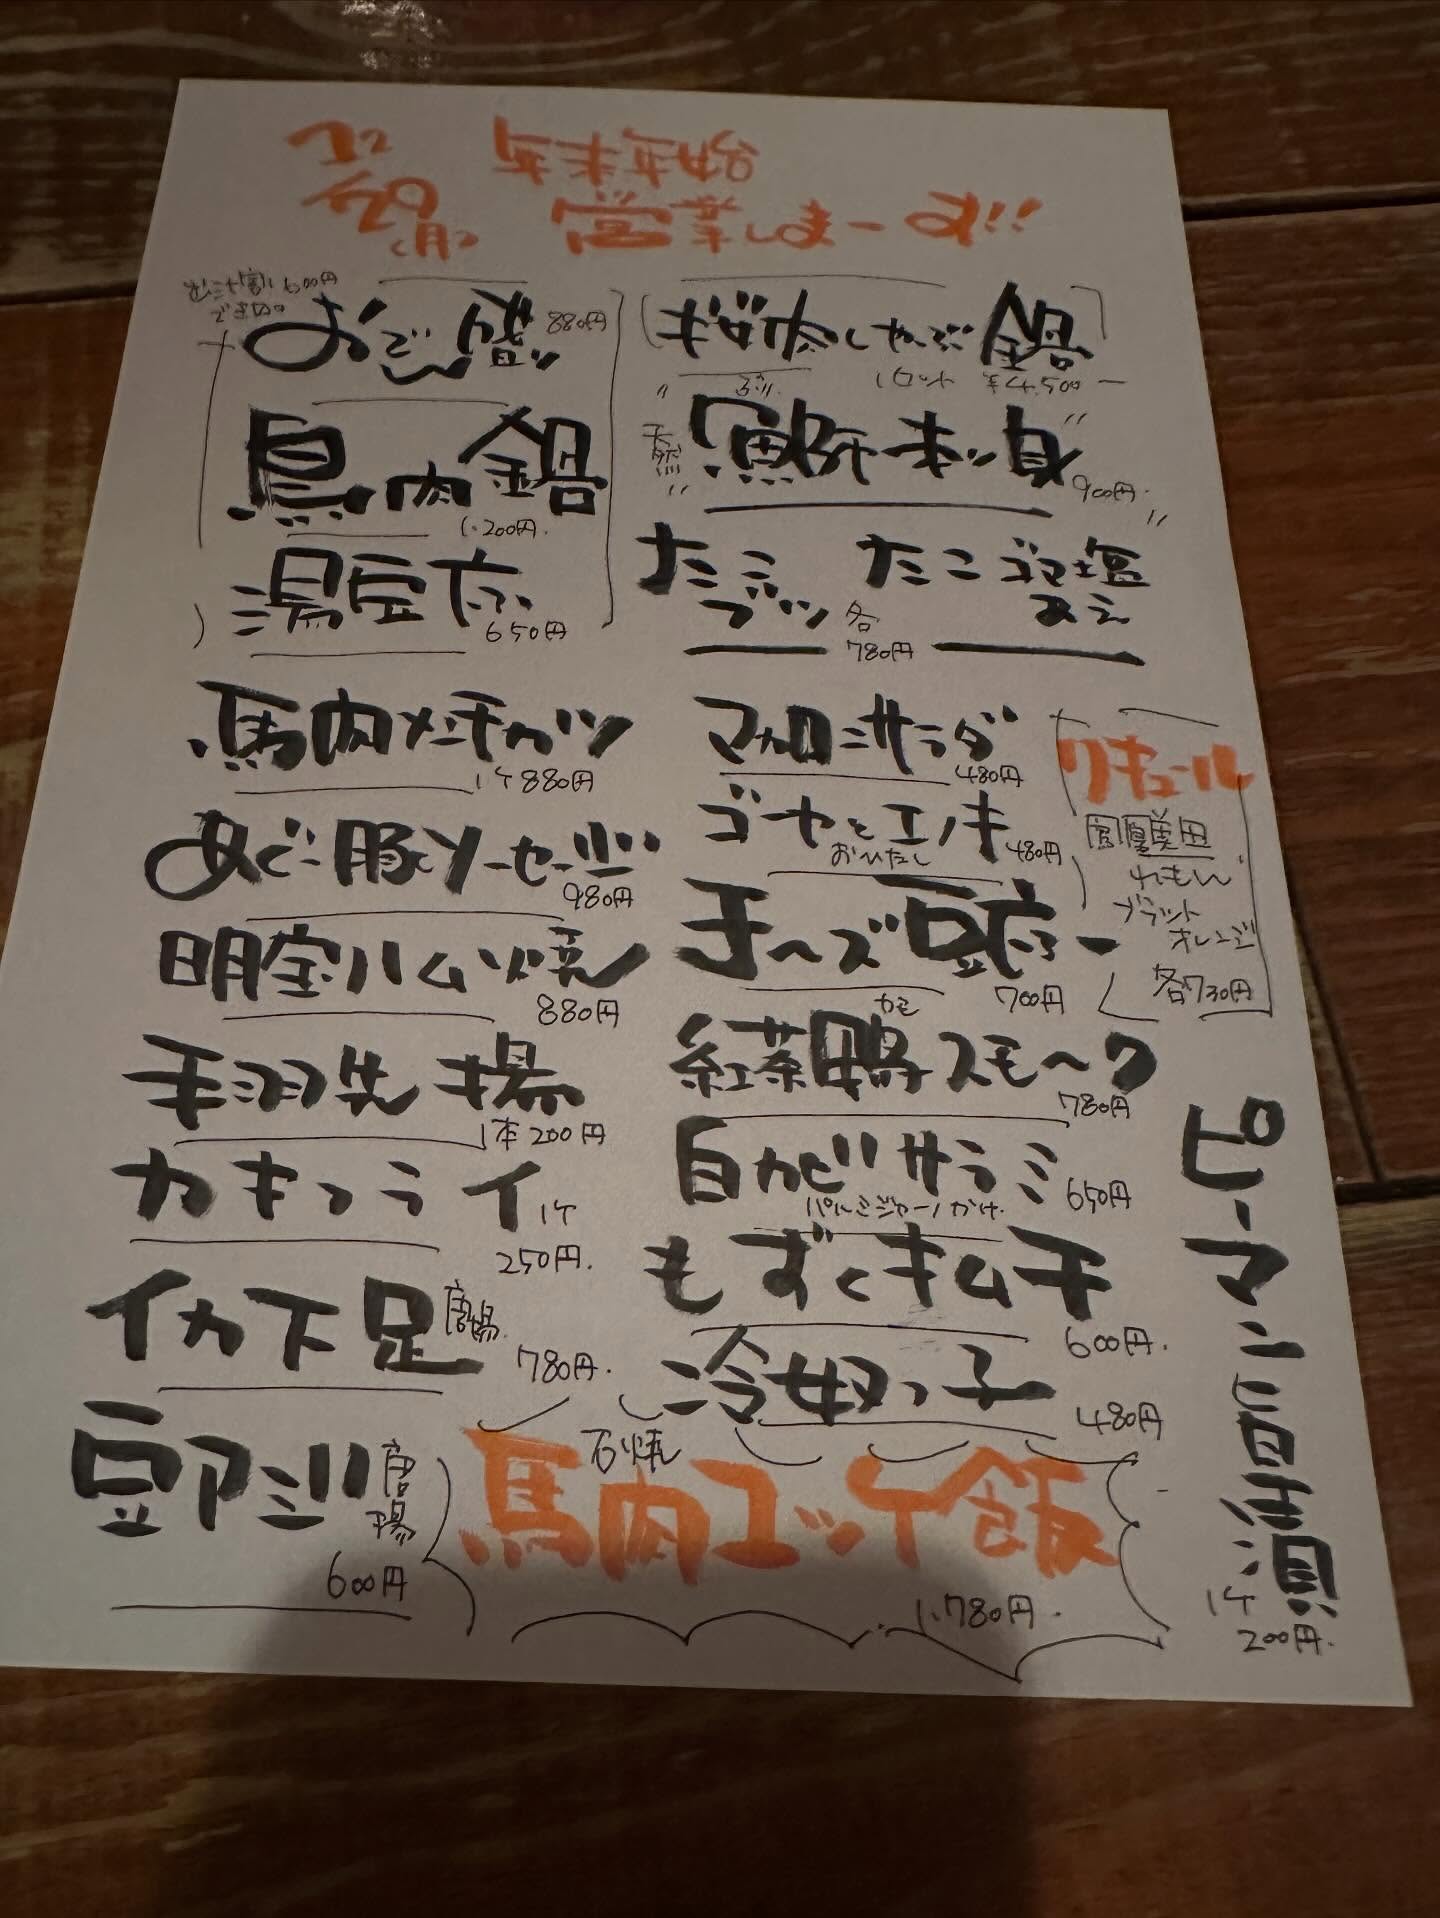 12/29(月)
年末年始
営業しまーす!!
出汁割り600円
できます。
おでん盛り 880円
鳥肉鍋
1,200円.
湯豆府 650円
馬肉メンチカツ
1ケ880円
あぐー豚ソーセージ
980円
明宝ハム焼
880円
手羽先揚
1本200円
カキフライ 1ケ
250円.
イカ下足 唐揚.
780円.
豆アジ 唐揚
600円
肉しゃぶ鍋
1ロット ¥4,500ー
ぶり
"天然" 鰤一本ッ身"
900円.
たこブツ
たこゴマ塩あえ
各780円
マカロニサラダ
480円
ゴーヤとエノキ
おひたし 480円
チーズ豆府ー
700円
カモ
紅茶鴨スモーク
780円
白カビサラミ
パルミジャーノかけ. 650円
もずくキムチ
600円.
冷奴っ子
480円
石焼
馬肉ユッケ飯
1,780円.
リキュール
鳳凰美田
れもん
ブラッド
オレンジ
各730円
ピーマン旨漬
1ケ
200円.